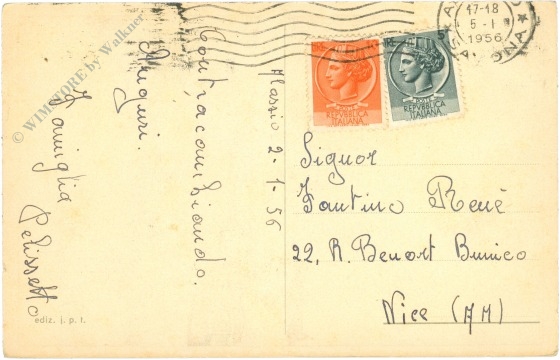 Alassio 2-1-56
Contraccambiando.
Auguri.
Famiglia Pelissetto
Signor
Fantino René
22, R. Benoit Bunico
Nice (AM)
POSTE
REPVBBLICA
ITALIANA
5
POSTE
REPVBBLICA
ITALIANA
17-18
5-1
1956
ediz. j. p. t.
© WIMSTORE by Walkner